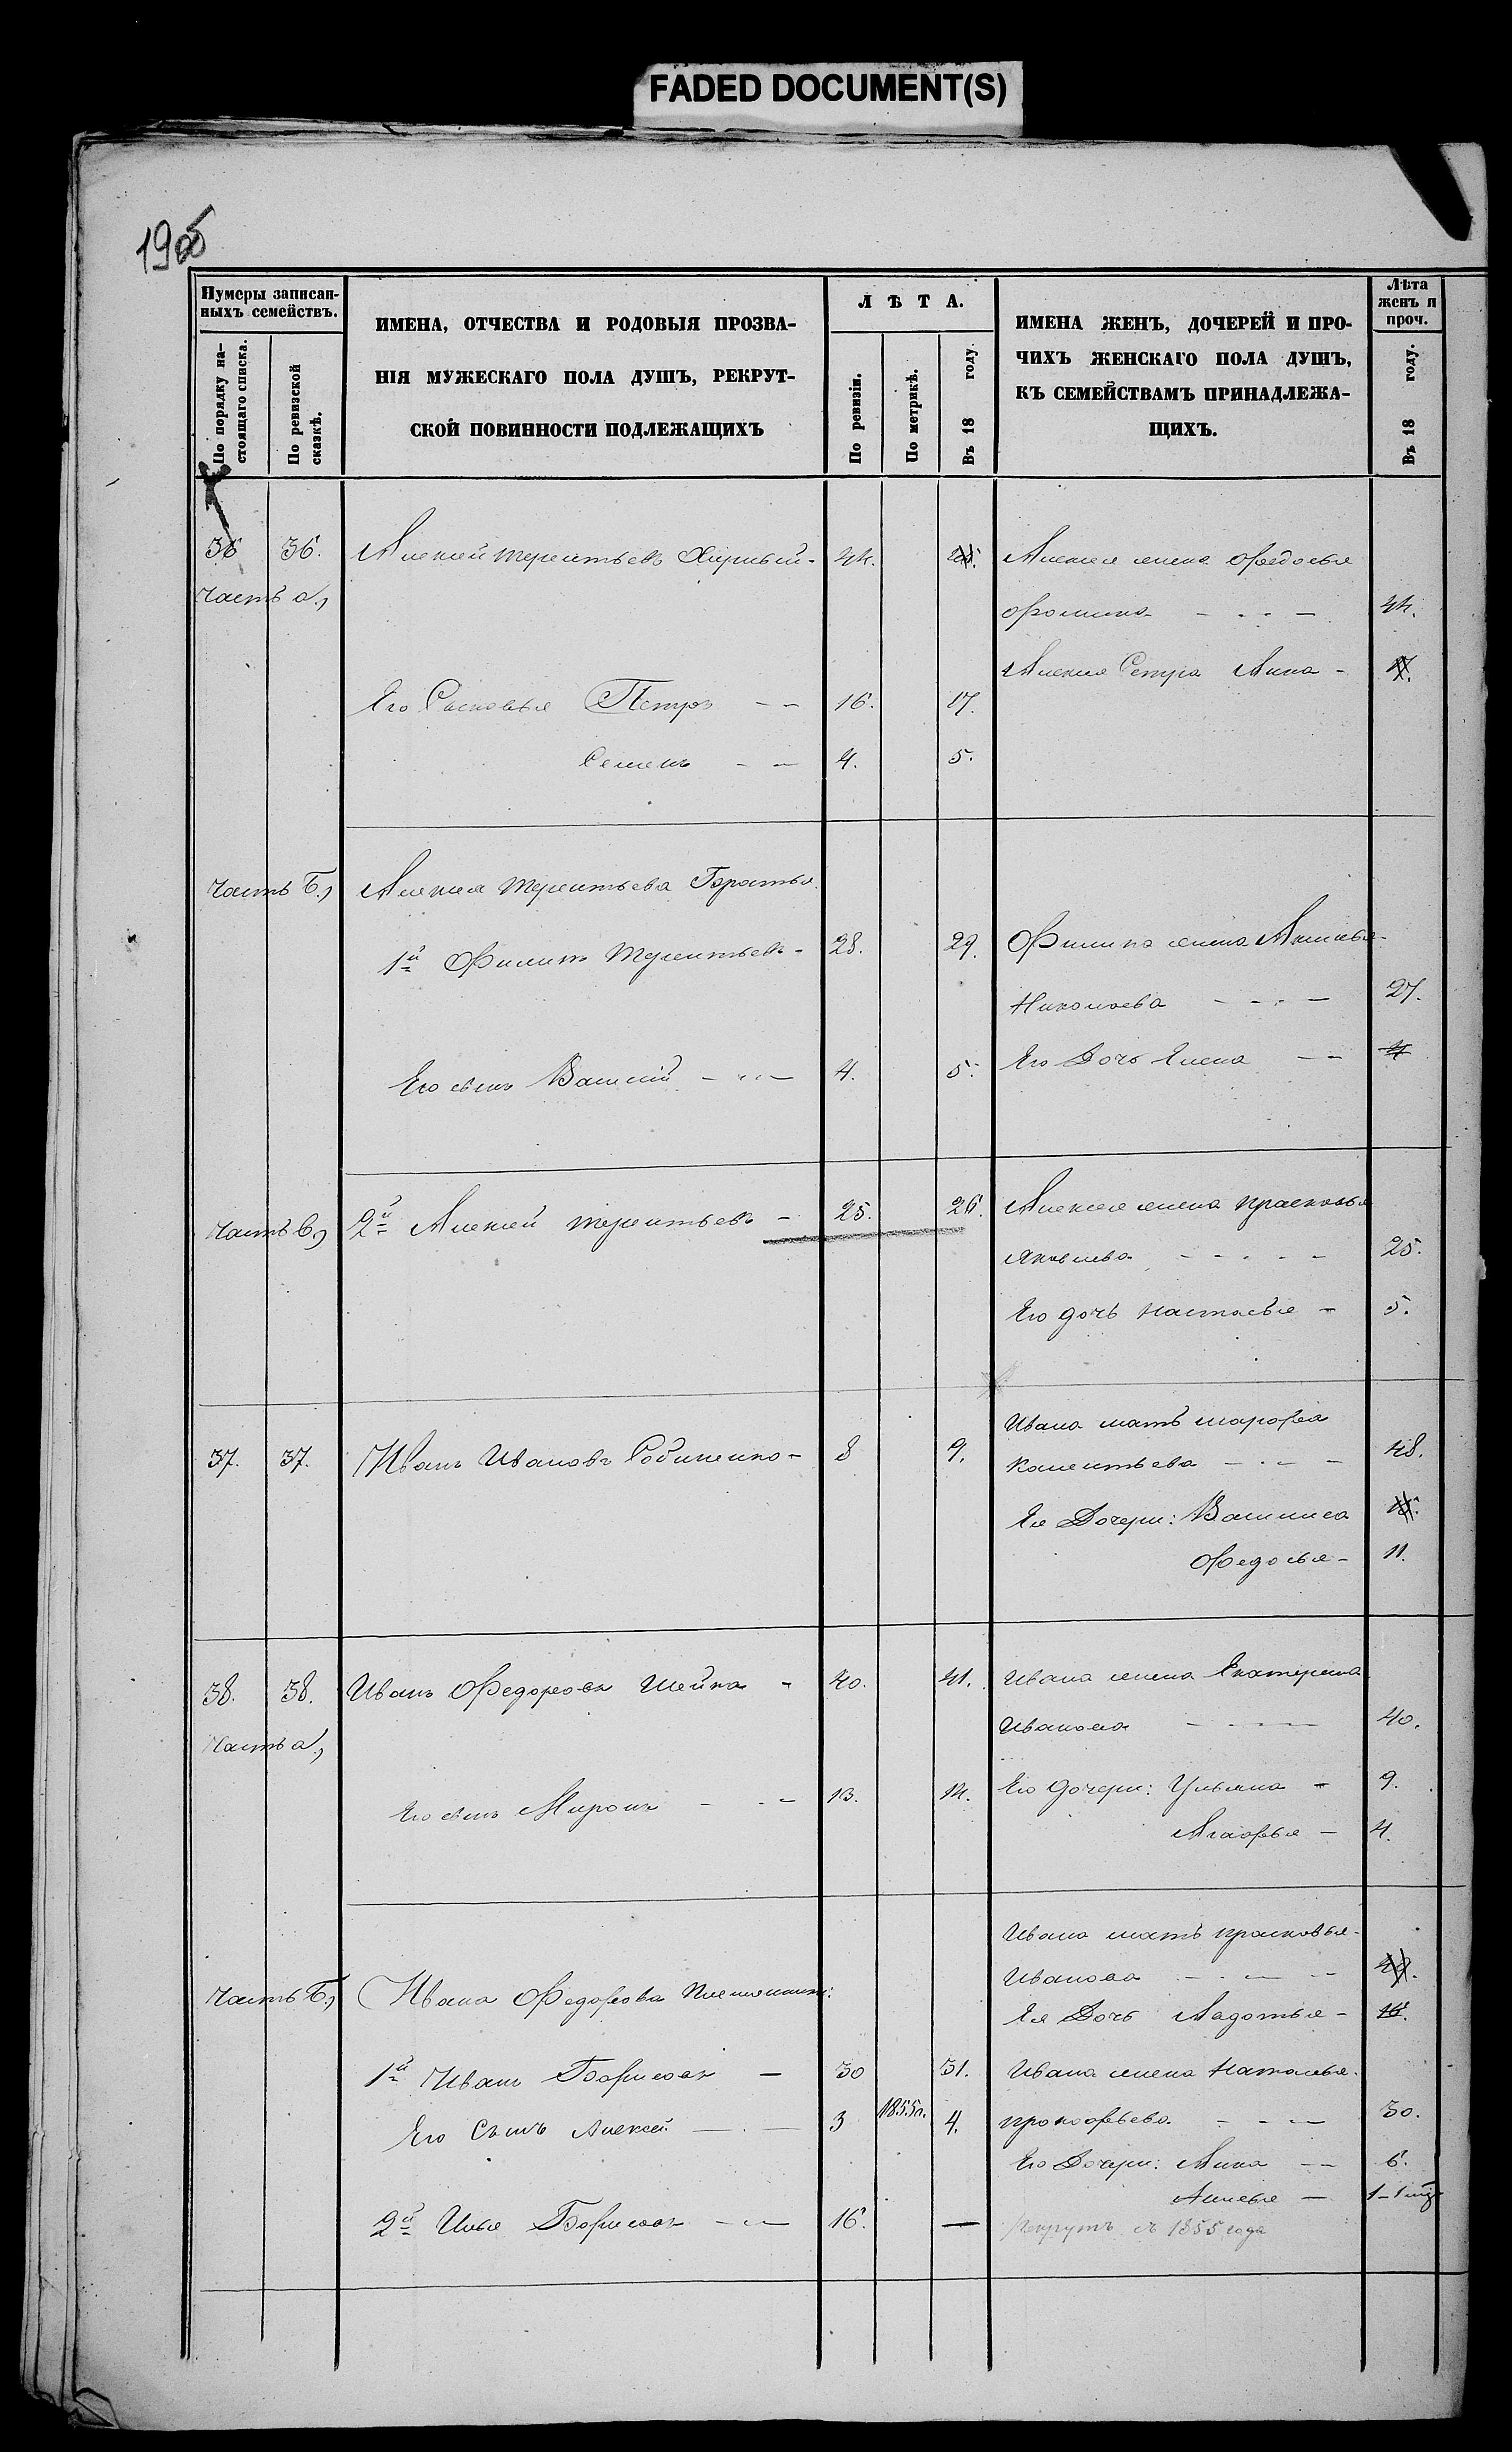 FADED DOCUMENT(S)
Нумеры записан-
ныхъ семействъ.
По порядку на-
стоящаго списка.
По ревизской
сказкѣ.
ИМЕНА, ОТЧЕСТВА И РОДОВЫЯ ПРОЗВА-
НІЯ МУЖЕСКАГО ПОЛА ДУШЪ, РЕКРУТ-
СКОЙ ПОВИННОСТИ ПОДЛЕЖАЩИХЪ
ЛѢТА.
По ревизіи.
По метрикѣ.
Въ 18 году.
ИМЕНА ЖЕНЪ, ДОЧЕРЕЙ И ПРО-
ЧИХЪ ЖЕНСКАГО ПОЛА ДУШЪ,
КЪ СЕМЕЙСТВАМЪ ПРИНАДЛЕЖА-
ЩИХЪ.
Лѣта
женъ и
проч.
Въ 18 году.
36 36. Алексей Терентьевъ 44. Алексея жена Федосья
Часть а,
Фомина - - - - 44.
Алексея Петра Анна -
Его Сыновья Петръ - - 16. 17.
Семенъ - - 4. 5.
Часть Б,) Алексея Терентьева Братья
1й Филипъ Терентьевъ - 28. 29. Филипа жена
Николаева - - - - 27.
Его сынъ Василій - - - 4. 5. Его Дочь Елена - - 4
Часть в,) 2й Алексей Терентьевъ - 25. 26. Алексея жена Прасковья
Яковлева - - - - - 25.
Его дочь Наталья - 5.
37. 37. Иванъ Ивановъ - 8 9. Ивана мать Марфа
- - - 48.
Ея Дочери: Василиса
Федосья - 11.
38. 38. Иванъ Федоровъ Шейка - 40. 41. Ивана жена Екатерина
Часть а,)
Иванова - - - - 40.
Его сынъ Миронъ - - - 13. 14. Его Дочери: Ульяна - 9.
Агафья - 4.
Ивана мать Прасковья -
Иванова - - - -
Часть Б,) Ивана Федорова племянники:
Ея Дочь - 16.
1й Иванъ Борисовъ - 30 31. Ивана жена Наталья -
Его Сынъ Алексей - - - 3 1855 4. Прокофьева - - - 30.
Его Дочери: Анна - - 6.
- 1-1
2й Илья Борисовъ - - - 16. - Рекрутъ съ 1855 года